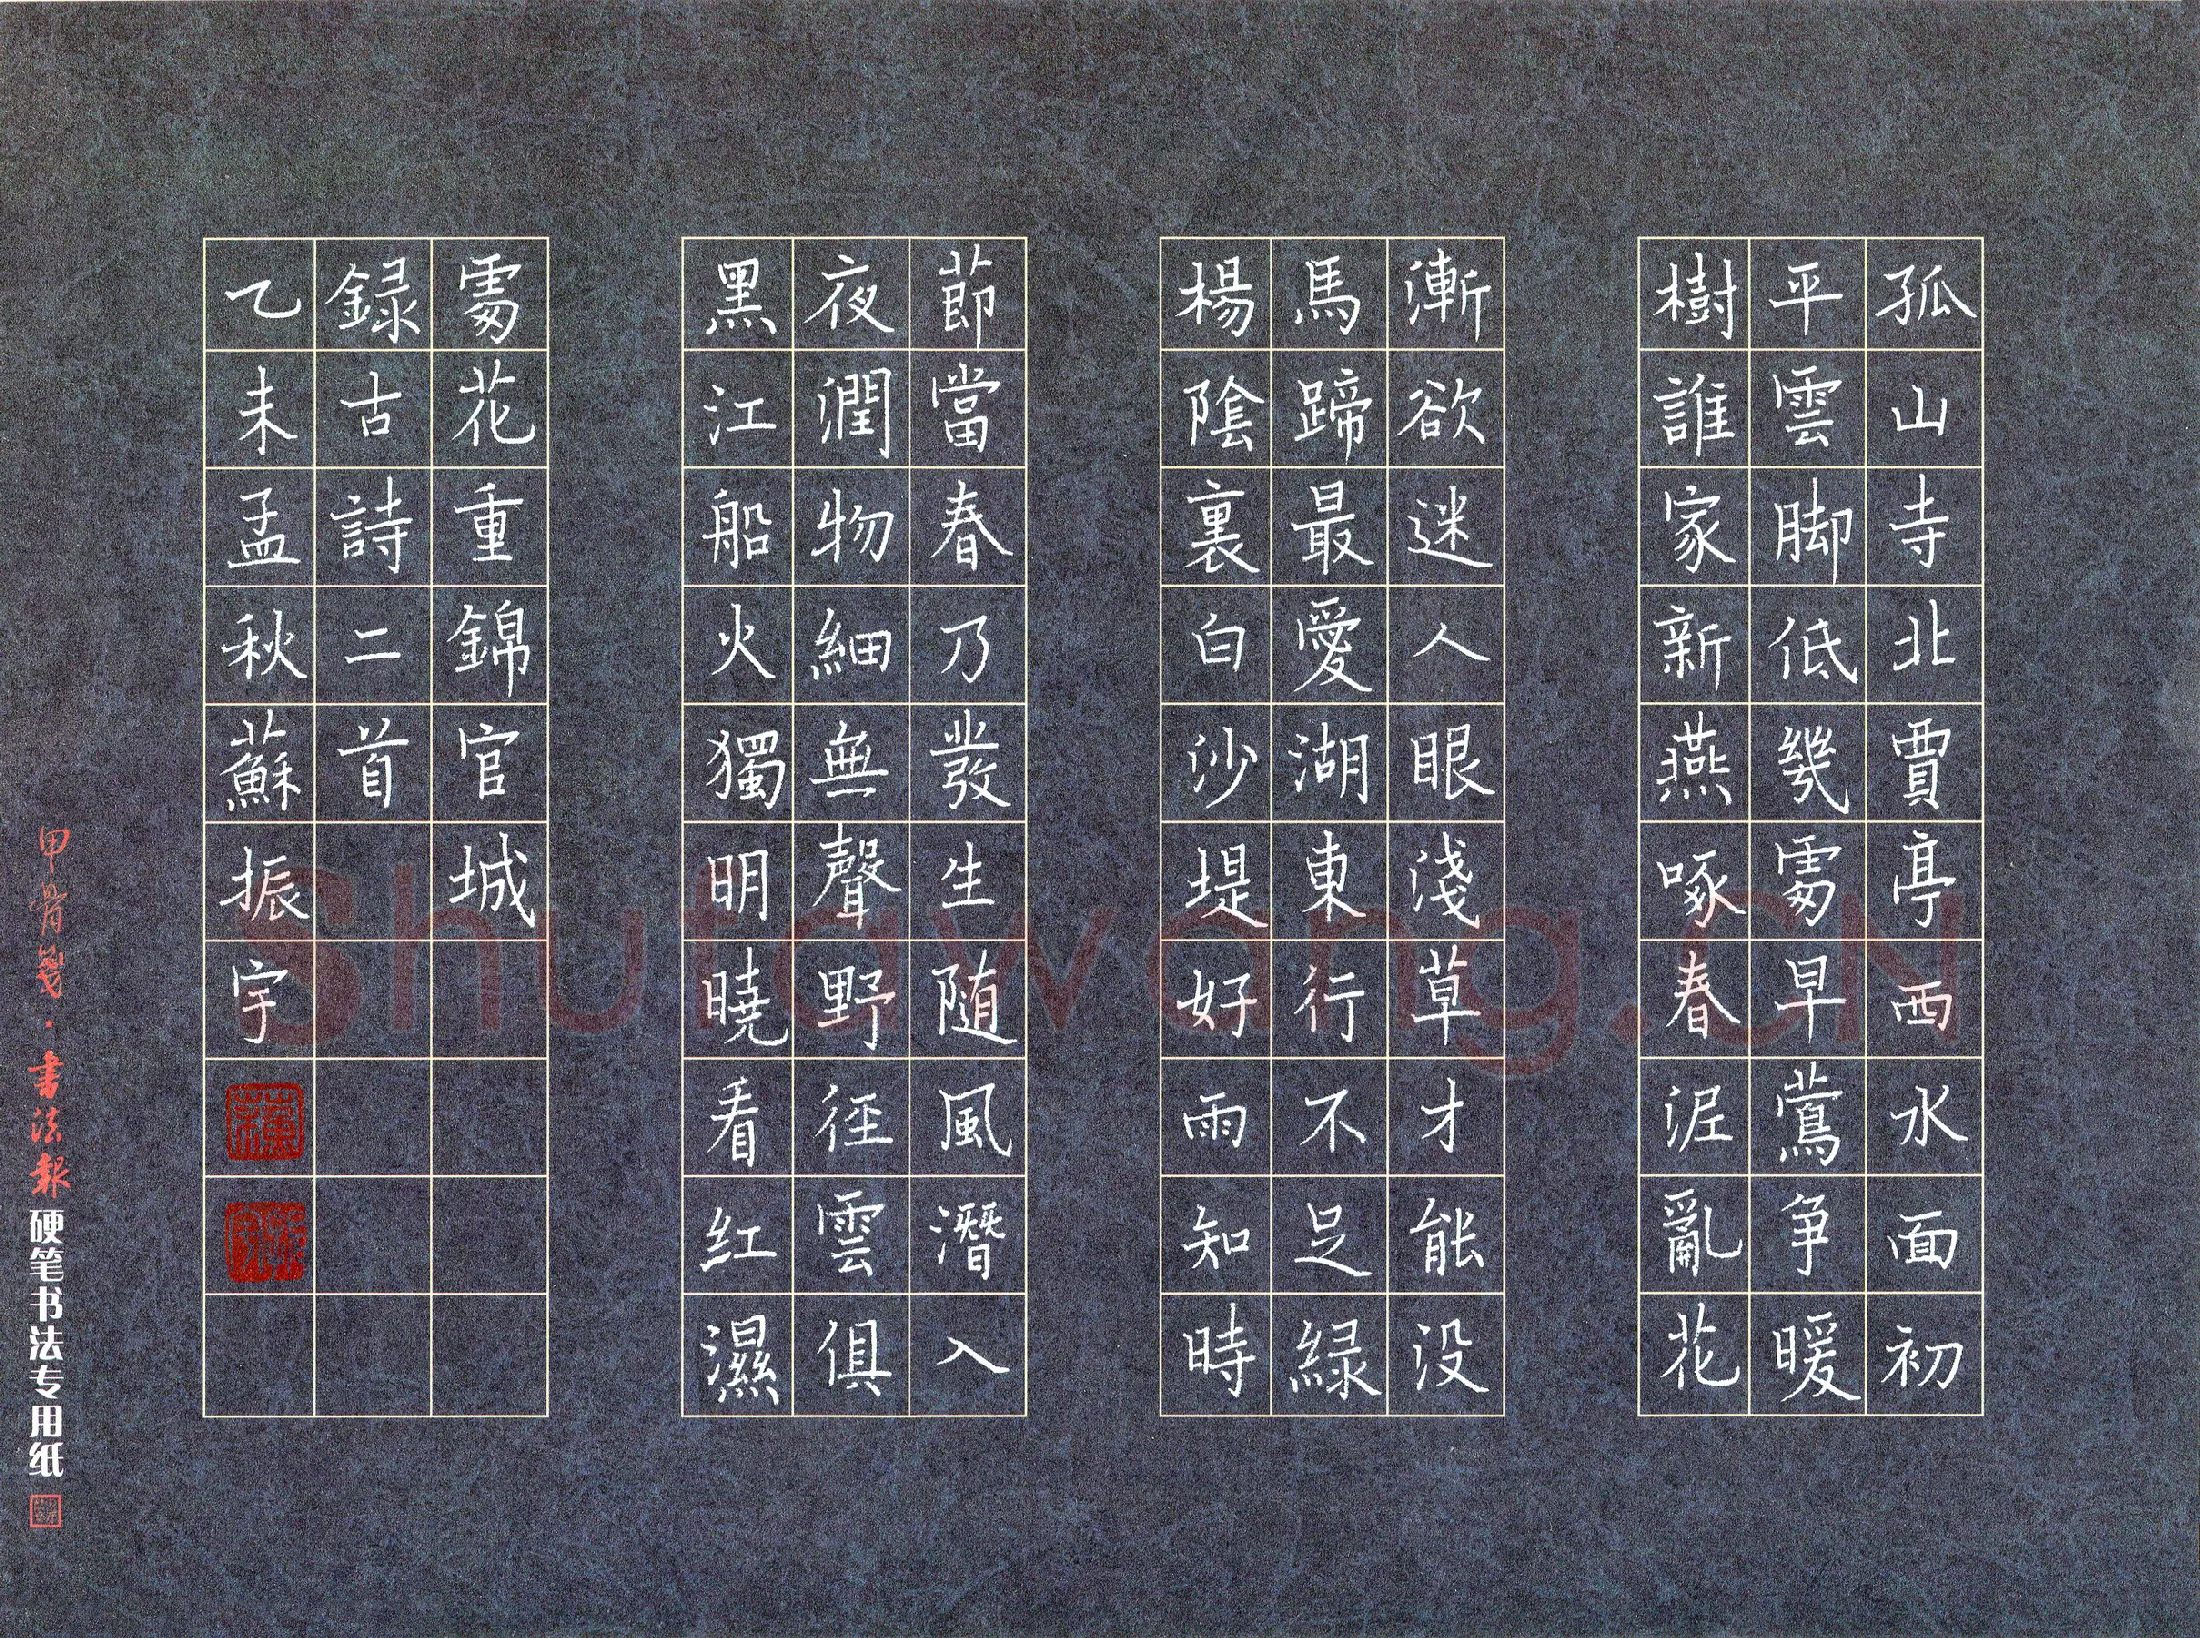 孤山寺北賈亭西水面初
平雲脚低幾處早鶯争暖
樹誰家新燕啄春泥亂花
漸欲迷人眼淺草才能没
馬蹄最愛湖東行不足緑
楊陰裏白沙堤好雨知時
節當春乃發生随風潛入
夜潤物細無聲野徑雲俱
黑江船火獨明曉看紅濕
處花重錦官城
録古詩二首
乙未孟秋蘇振宇
甲骨箋·書法報硬笔书法专用纸
Shufawang.CN